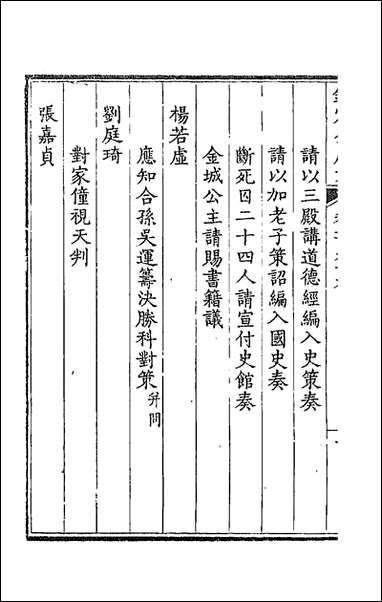 請以三殿講道德經編入史策奏
請以加老子策詔編入國史奏
斷死囚二十四人請宣付史館奏
金城公主請賜書籍議
楊若虛
應知合孫吳運籌決勝科對策并問
劉庭琦
對家僮視天判
張嘉貞